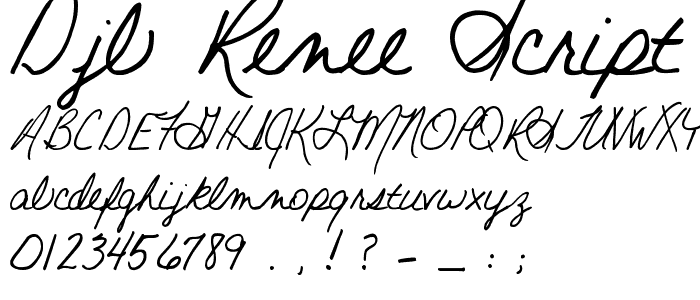 Djb Renee Script
ABCDEFGHIJKLMNOPQRSTUVWXY
abcdefghijklmnopqrstuvwxyz
0123456789 . , ! ? - _ : ;